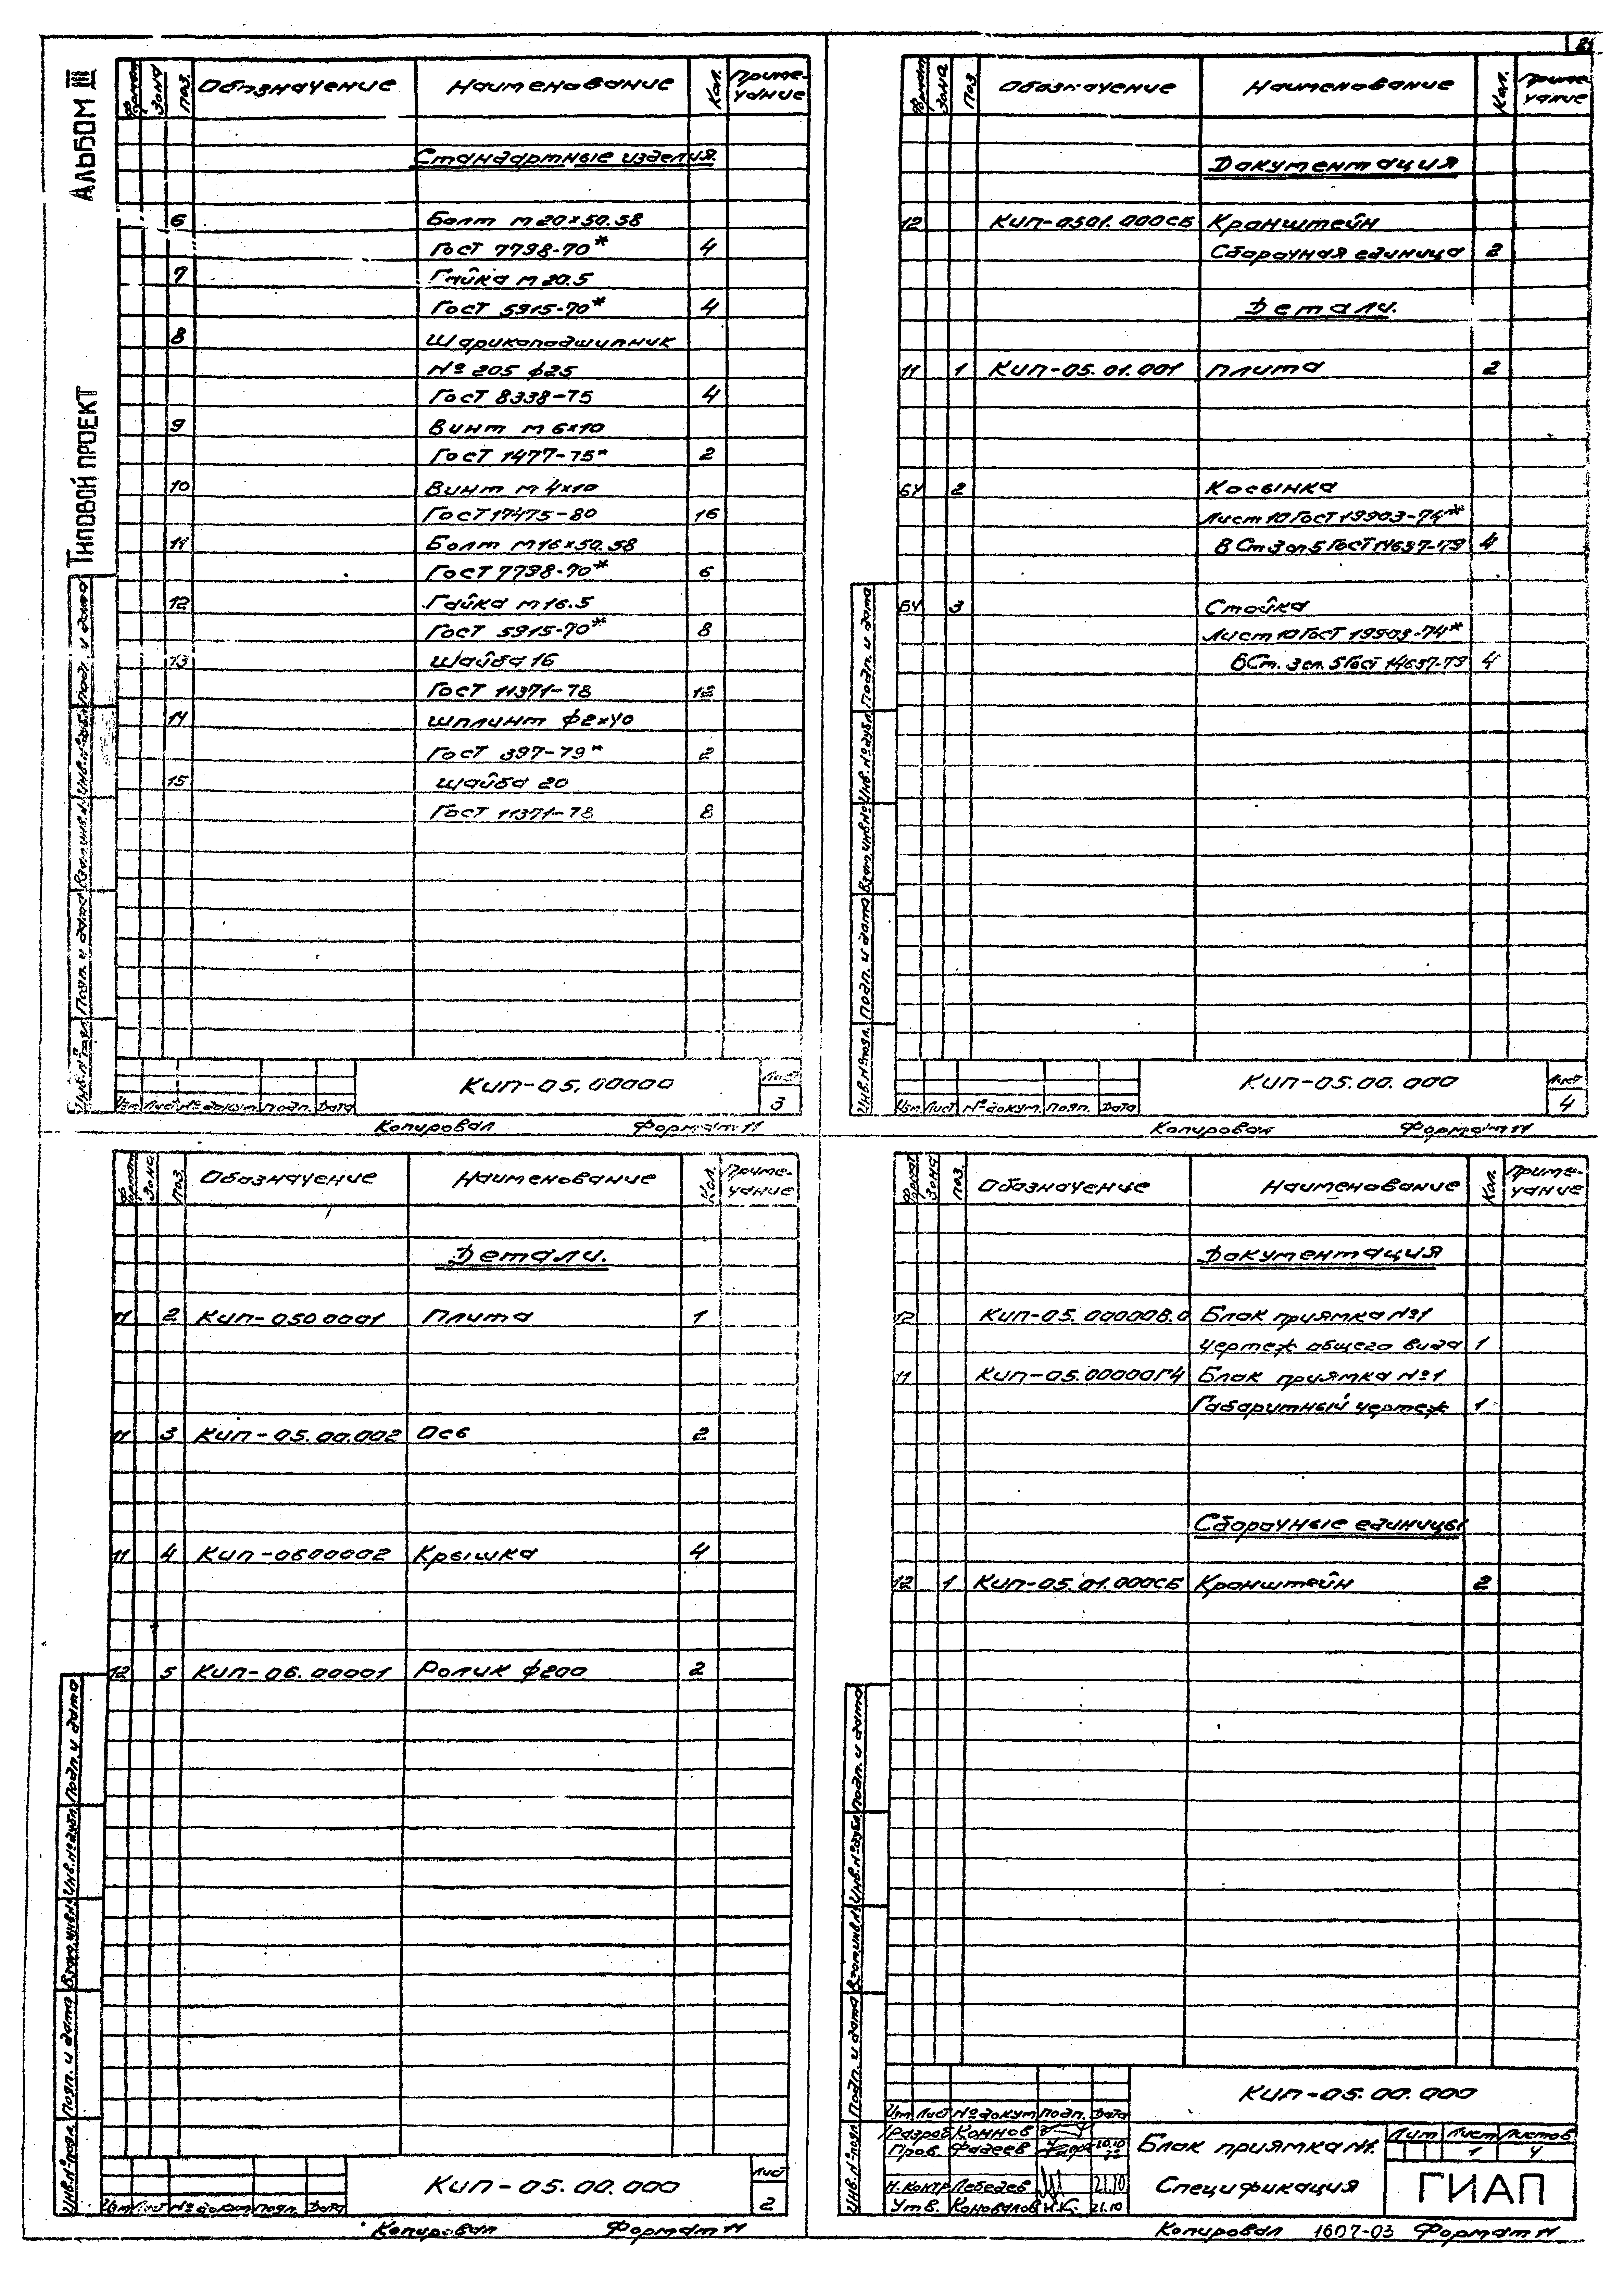 Альбом III
Типовой проект
21
Формат Зона Поз. Обозначение Наименование Кол. Приме-
чание
Стандартные изделия.
6 Болт М20×50.58
ГОСТ 7798-70* 4
7 Гайка М20.5
ГОСТ 5915-70* 4
8 Шарикоподшипник
№ 205 ф25
ГОСТ 8338-75 4
9 Винт М6×10
ГОСТ 1477-75* 2
10 Винт М4×10
ГОСТ 17475-80 16
11 Болт М16×50.58
ГОСТ 7798-70* 6
12 Гайка М16.5
ГОСТ 5915-70* 8
13 Шайба 16
ГОСТ 11371-78 12
14 Шплинт ф2×40
ГОСТ 397-79* 2
15 Шайба 20
ГОСТ 11371-78 8
Инв.№подл. Подп. и дата Взам.инв.№ Инв.№дубл. Подп. и дата
КИП-05.00000 Лист
3
Изм Лист № докум. Подп. Дата
Копировал Формат 11
Формат Зона Поз. Обозначение Наименование Кол. Приме-
чание
Документация
12 КИП-0501.000СБ Кронштейн
Сборочная единица 2
Детали.
11 1 КИП-05.01.001 Плита 2
БЧ 2 Косынка
Лист 10 ГОСТ 19903-74*
В Ст3 сп5 ГОСТ 14637-79 4
БЧ 3 Стойка
Лист 10 ГОСТ 19903-74*
ВСт. 3 сп. 5 ГОСТ 14637-79 4
Инв.№подл. Подп. и дата Взам.инв.№ Инв.№дубл. Подп. и дата
КИП-05.00.000 Лист
4
Изм Лист № докум. Подп. Дата
Копировал Формат 11
Формат Зона Поз. Обозначение Наименование Кол. Приме-
чание
Детали.
11 2 КИП-0500001 Плита 1
11 3 КИП-05.00.002 Ось 2
11 4 КИП-0600002 Крышка 4
12 5 КИП-06.00001 Ролик ф200 2
Инв.№подл. Подп. и дата Взам.инв.№ Инв.№дубл. Подп. и дата
КИП-05.00.000 Лист
2
Изм Лист № докум Подп. Дата
Копировал Формат 11
Формат Зона Поз. Обозначение Наименование Кол. Приме-
чание
Документация
12 КИП-05.00000В.О Блок приямка №1
Чертеж общего вида 1
11 КИП-05.00000ГЧ Блок приямка №1
Габаритный чертеж 1
Сборочные единицы
12 1 КИП-05.01.000СБ Кронштейн 2
Инв.№подл. Подп. и дата Взам.инв.№ Инв.№дубл. Подп. и дата
КИП-05.00.000
Изм Лист № докум Подп. Дата
Разраб Коннов
Пров. Фадеев
Н.контр Лебедев 21.10
Утв. Коновалов 21.10
Блок приямка №1.
Спецификация
Лит Лист Листов
1 4
ГИАП
Копировал 1607-03 Формат 11